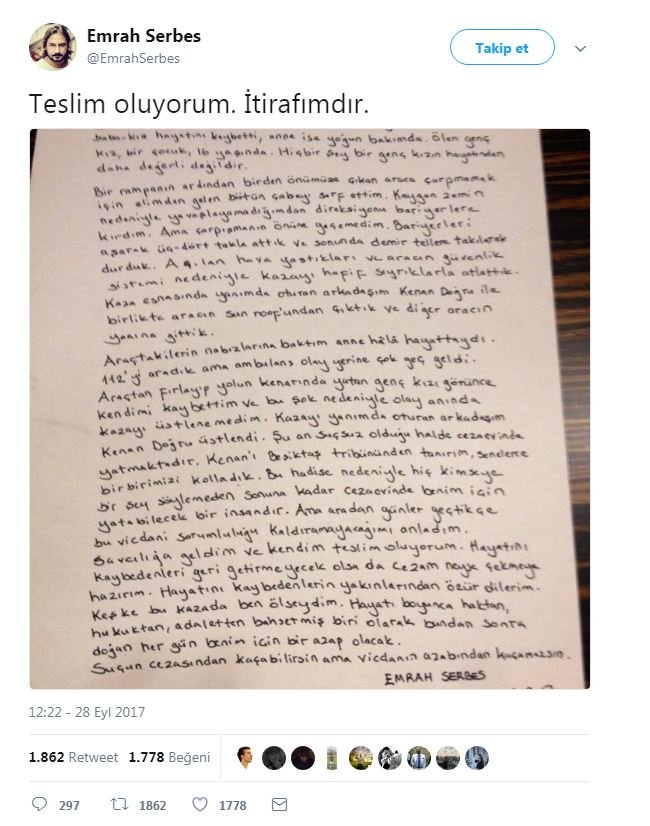 Emrah Serbes
@EmrahSerbes
Takip et
Teslim oluyorum. İtirafımdır.
baba-kız hayatını kaybetti, anne ise yoğun bakımda. Ölen genç
kız, bir çocuk, 16 yaşında. Hiçbir şey bir genç kızın hayatından
daha değerli değildir.
Bir rampanın ardından birden önümüze çıkan araca çarpmamak
için elimden gelen bütün çabayı sarf ettim. Kaygan zemin
nedeniyle yavaşlayamadığımdan direksiyonu bariyerlere
kırdım. Ama çarpışmanın önüne geçemedim. Bariyerleri
aşarak üç-dört takla attık ve sonunda demir tellere takılarak
durduk. Açılan hava yastıkları ve aracın güvenlik
sistemi nedeniyle kazayı hafif sıyrıklarla atlattık.
Kaza esnasında yanımda oturan arkadaşım Kenan Doğru ile
birlikte aracın sun roof'undan çıktık ve diğer aracın
yanına gittik.
Araçtakilerin nabızlarına baktım anne hâlâ hayattaydı.
112'yi aradık ama ambulans olay yerine çok geç geldi.
Araçtan fırlayıp yolun kenarında yatan genç kızı görünce
kendimi kaybettim ve bu şok nedeniyle olay anında
kazayı üstlenemedim. Kazayı yanımda oturan arkadaşım
Kenan Doğru üstlendi. Şu an suçsuz olduğu halde cezaevinde
yatmaktadır. Kenan'ı Beşiktaş tribününden tanırım, senelerce
birbirimizi kolladık. Bu hadise nedeniyle hiç kimseye
bir şey söylemeden sonuna kadar cezaevinde benim için
yatabilecek bir insandır. Ama aradan günler geçtikçe
bu vicdani sorumluluğu kaldıramayacağımı anladım.
Savcılığa geldim ve kendim teslim oluyorum. Hayatını
kaybedenleri geri getirmeyecek olsa da cezam neyse çekmeye
hazırım. Hayatını kaybedenlerin yakınlarından özür dilerim.
Keşke bu kazada ben ölseydim. Hayatı boyunca haktan,
hukuktan, adaletten bahsetmiş biri olarak bundan sonra
doğan her gün benim için bir azap olacak.
Suçun cezasından kaçabilirsin ama vicdanın azabından kaçamazsın.
EMRAH SERBES
12:22 - 28 Eyl 2017
1.862 Retweet 1.778 Beğeni
297 1862 1778